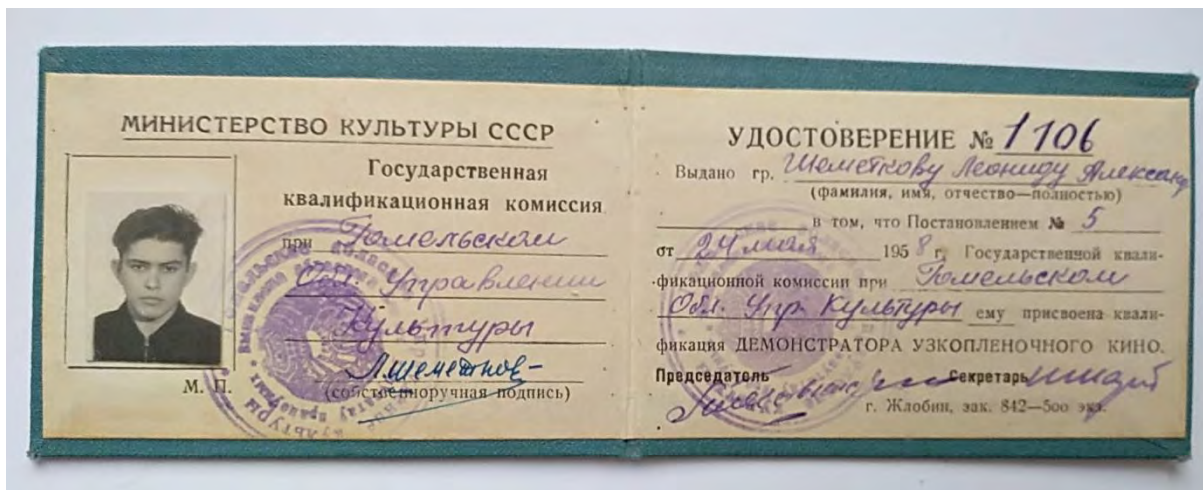 МИНИСТЕРСТВО КУЛЬТУРЫ СССР
Государственная
квалификационная комиссия
при Гомельском
Обл. Управлении
Культуры
Л.Шеметков-
М. П.
(собственноручная подпись)
УДОСТОВЕРЕНИЕ № 1106
Выдано гр. Шеметкову Леониду Александ
(фамилия, имя, отчество—полностью)
в том, что Постановлением № 5
от 24 мая 1958 г. Государственной квали-
фикационной комиссии при Гомельском
Обл. Упр. Культуры ему присвоена квали-
фикация ДЕМОНСТРАТОРА УЗКОПЛЕНОЧНОГО КИНО.
Председатель Секретарь
г. Жлобин, зак. 842—500 экз.